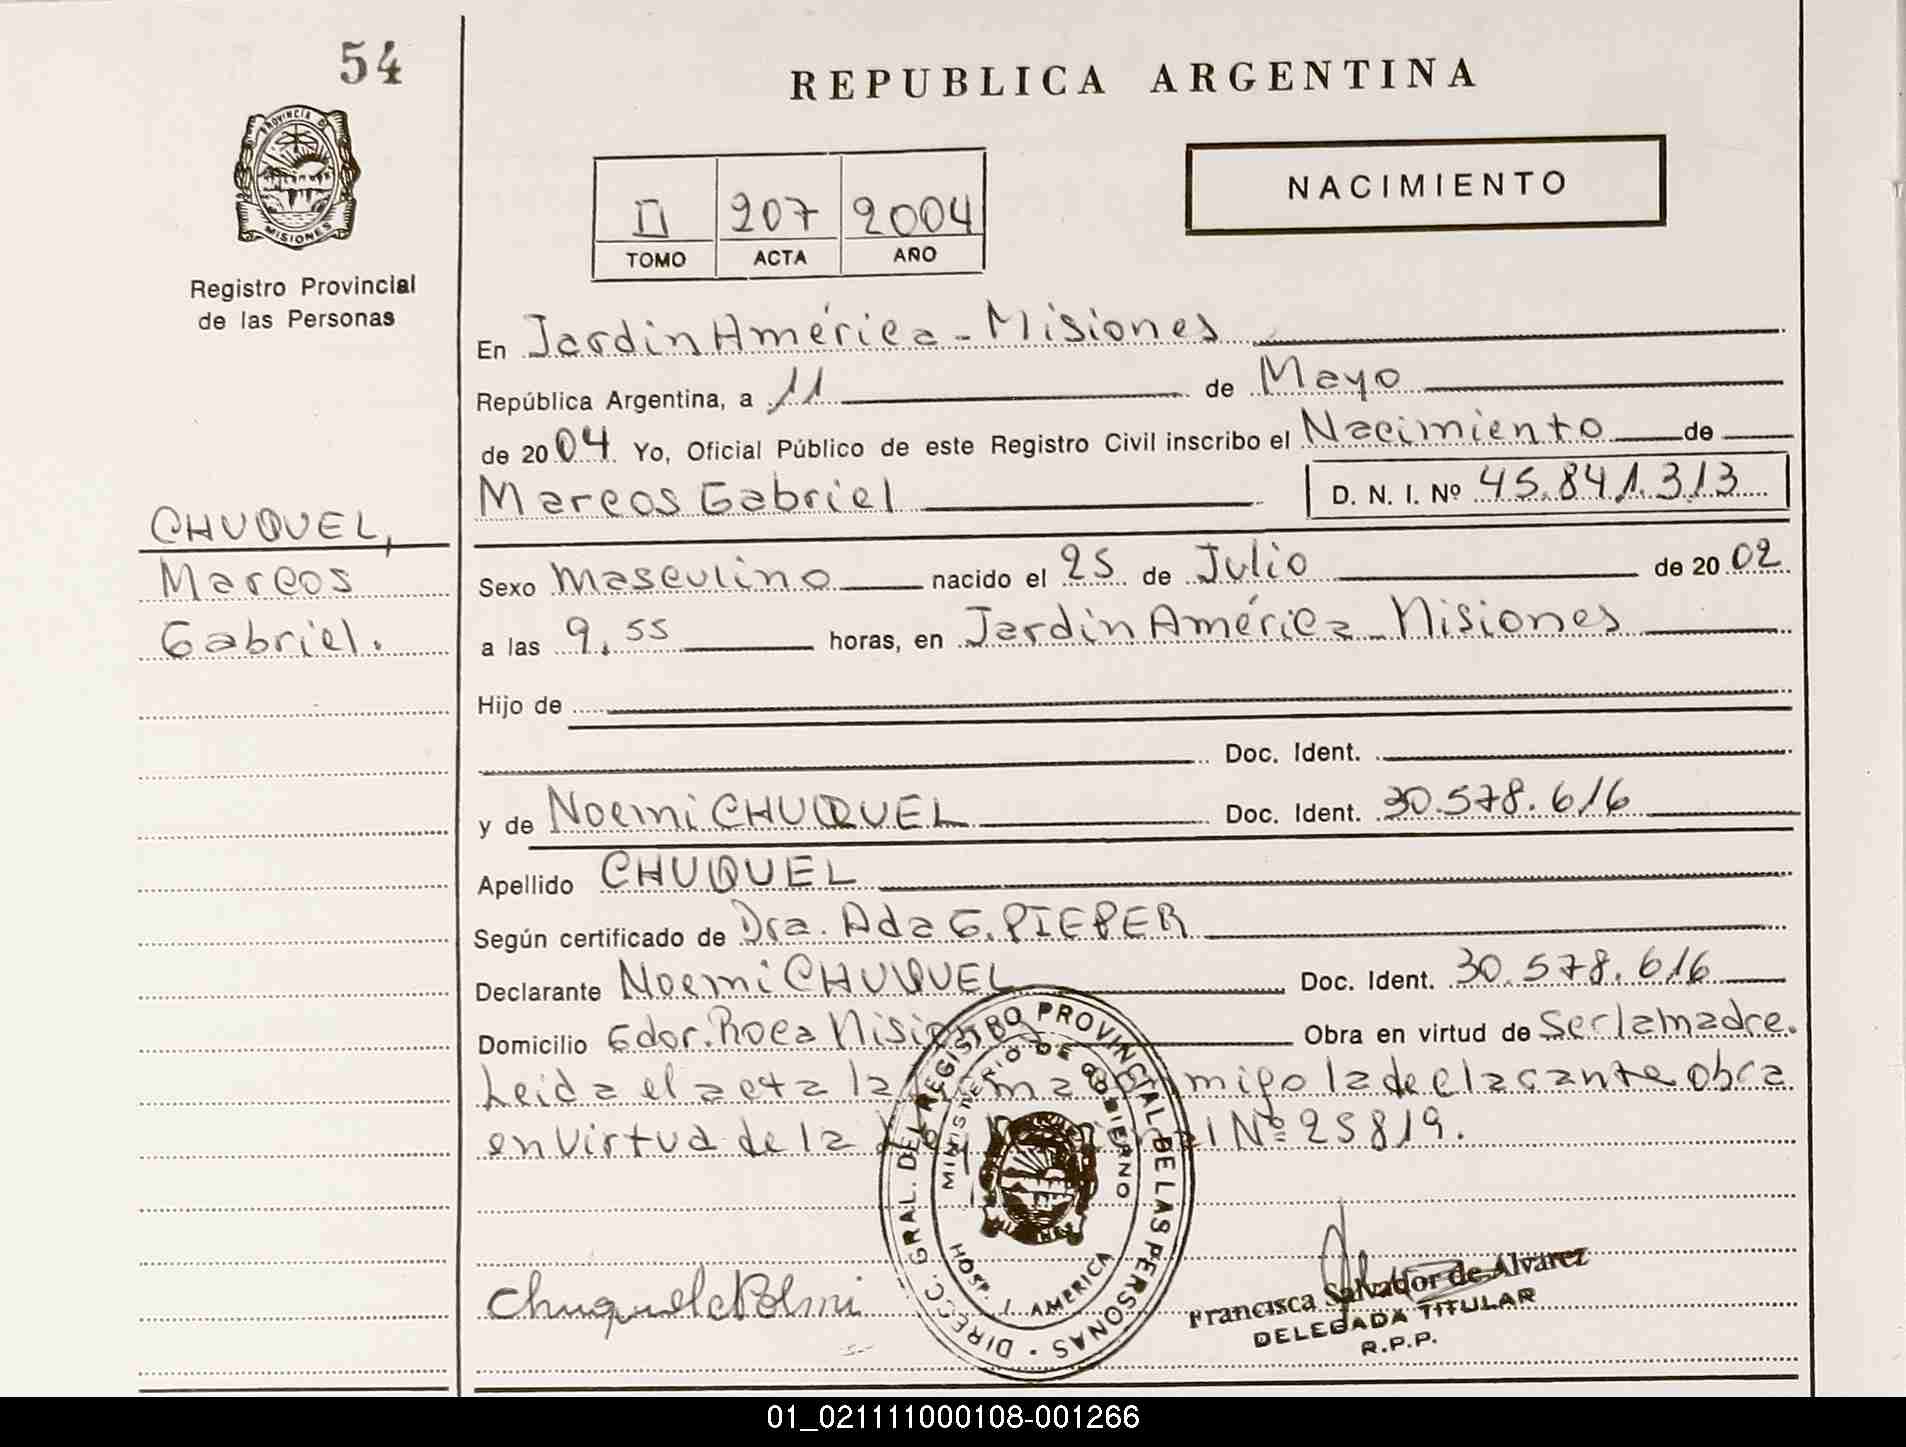 54
REPUBLICA ARGENTINA
PROVINCIA D
MISIONES
Registro Provincial
de las Personas
NACIMIENTO
II 207 2004
TOMO ACTA AÑO
En Jardin América - Misiones
República Argentina, a 11 de Mayo
de 2004 Yo, Oficial Público de este Registro Civil inscribo el Nacimiento de
Marcos Gabriel D. N. I. Nº 45.841.313
CHUQUEL,
Marcos
Gabriel.
Sexo masculino nacido el 25 de Julio de 2002
a las 9,55 horas, en Jardin América - Misiones
Hijo de
Doc. Ident.
y de Noemi CHUQUEL Doc. Ident. 30.578.616
Apellido CHUQUEL
Según certificado de Dra. Ada G. PIEPER
Declarante Noemi CHUQUEL Doc. Ident. 30.578.616
Domicilio Gdor. Roca Misiones Obra en virtud de Ser la madre.
Leida el acta la firma conmigo la declarante obra
en virtud de la Ley Nº 25819.
DIRECC. GRAL. DEL REGISTRO PROVINCIAL DE LAS PERSONAS
MINISTERIO DE GOBIERNO
HOSP. J. AMERICA
Chuquel
Francisca Salvador de Alvarez
DELEGADA TITULAR
R.P.P.
01_021111000108-001266